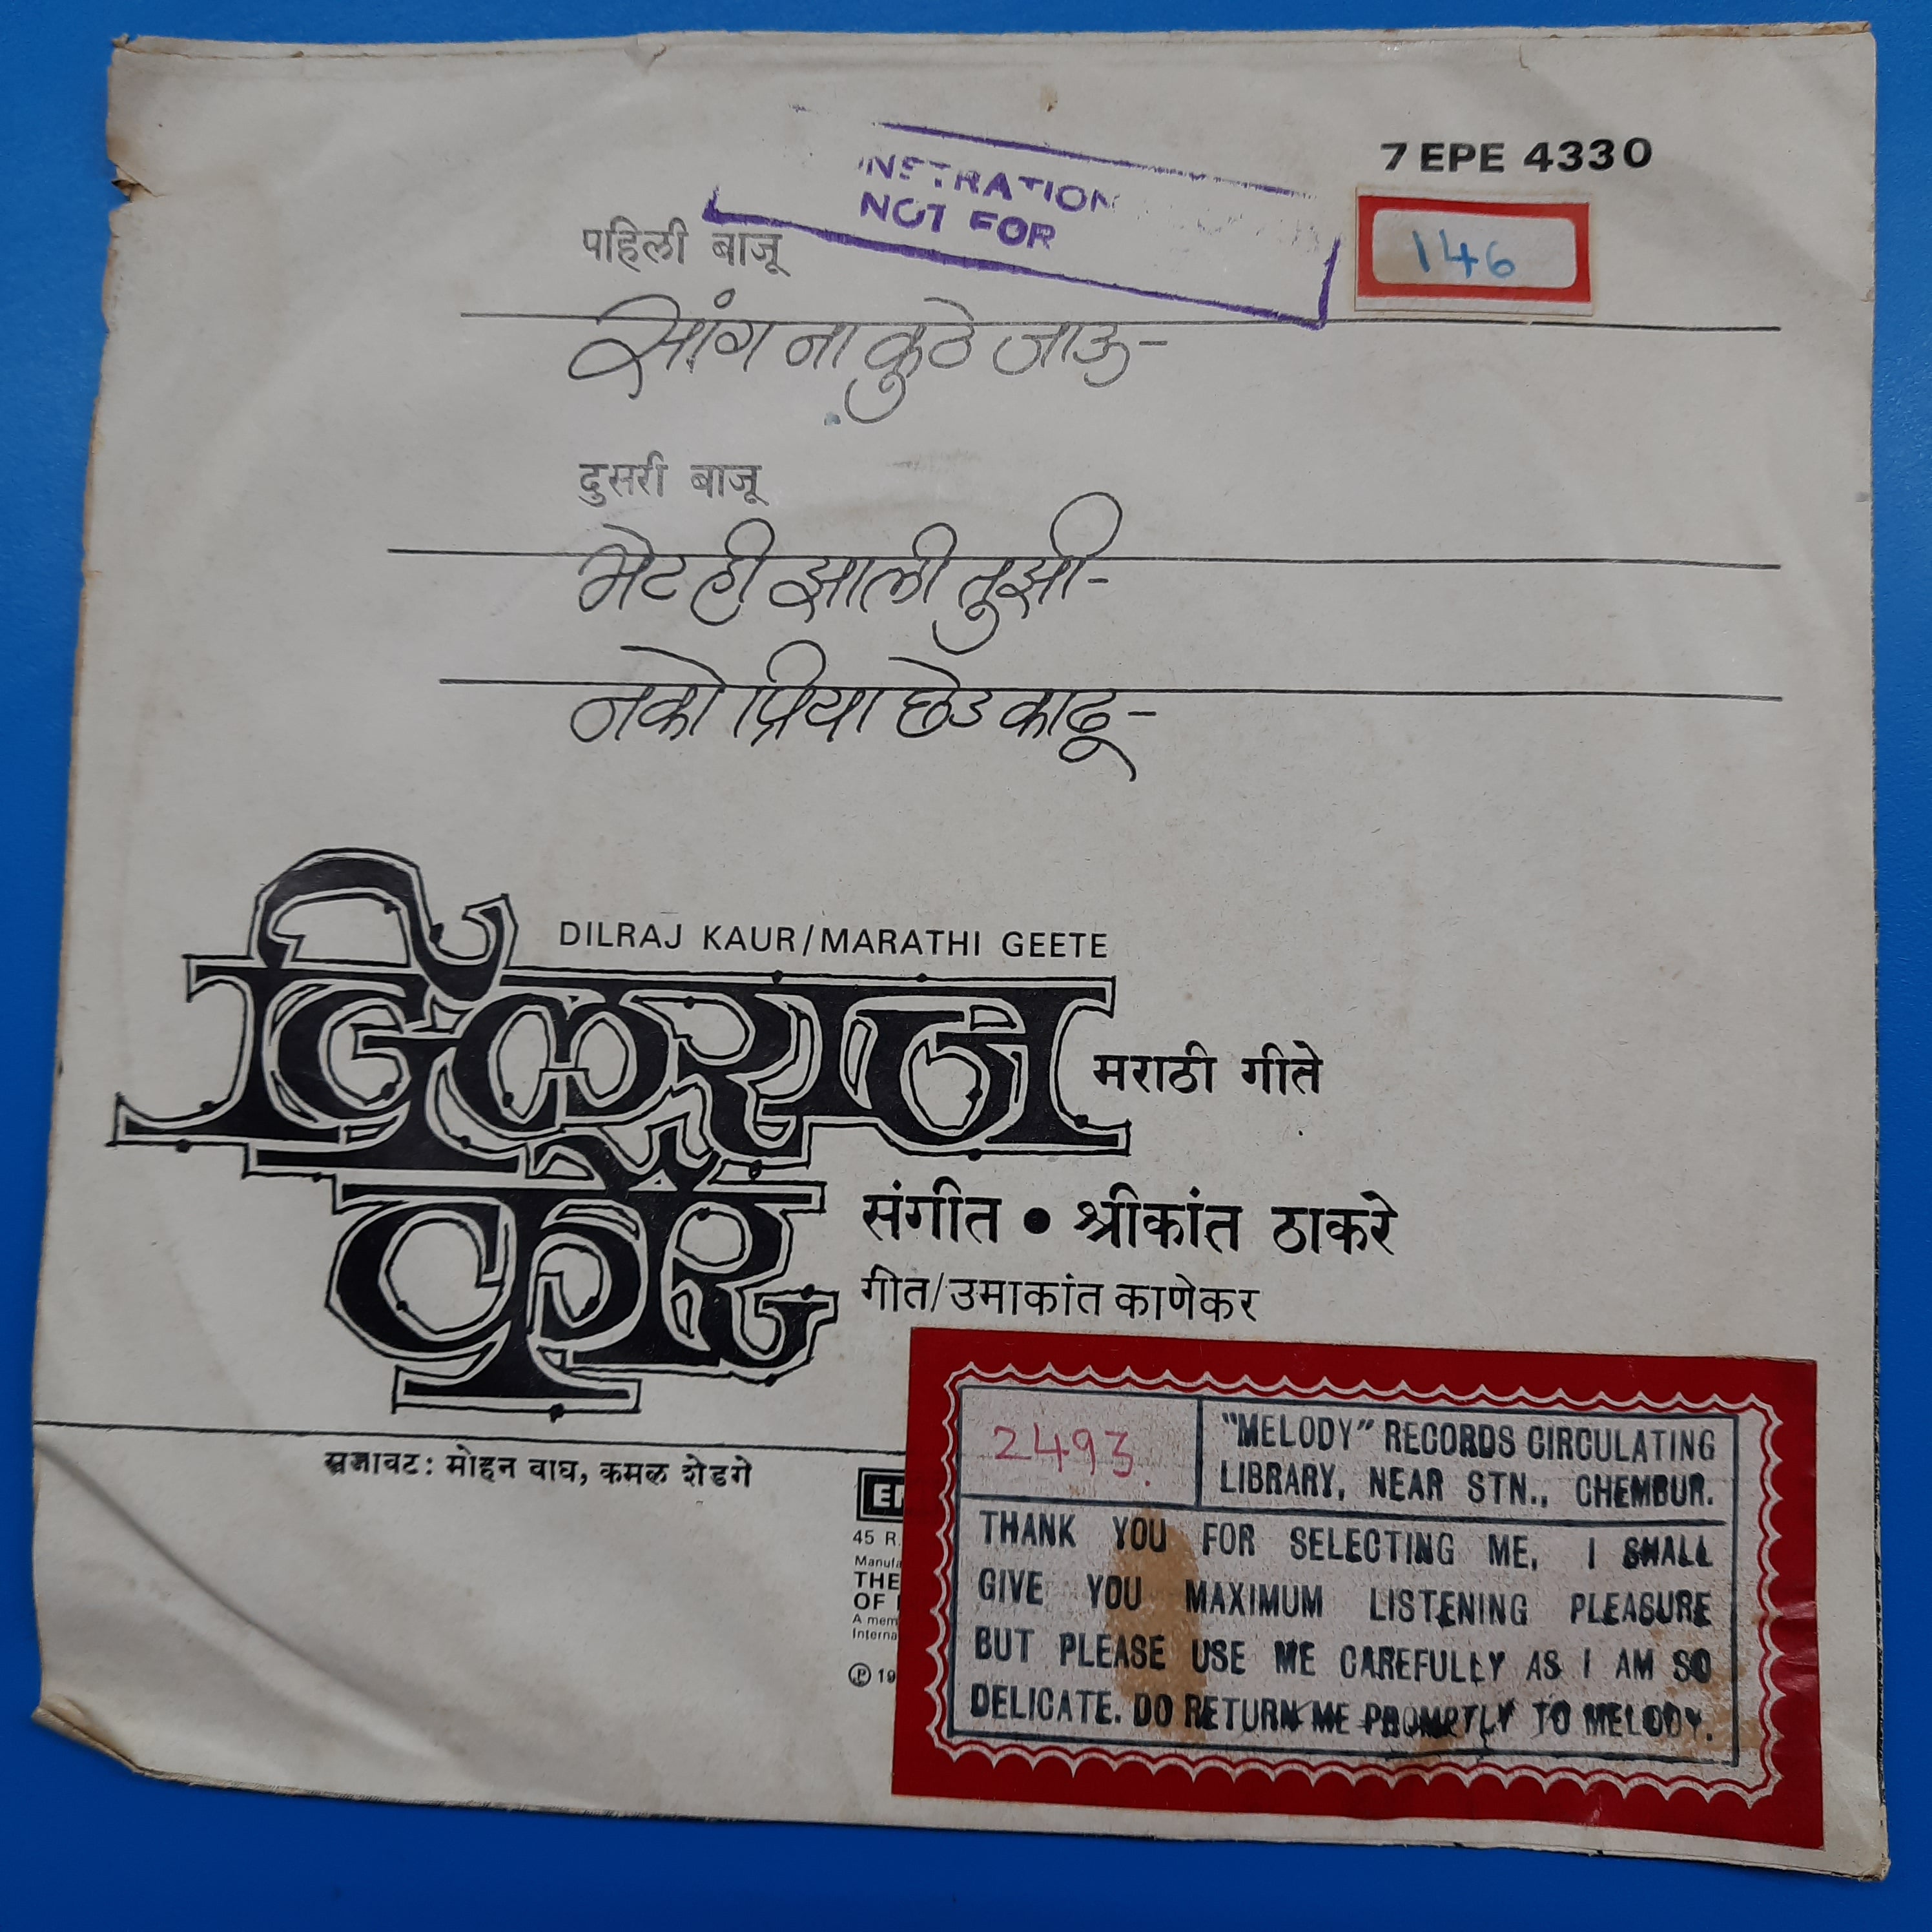 7 EPE 4330
NSTRATION
NOT FOR
146
पहिली बाजू
सांग ना कुठे जाऊ-
दुसरी बाजू
भेट ही झाली तुझी-
नको प्रिया छेड काढू-
DILRAJ KAUR/MARATHI GEETE
दिलराज
मराठी गीते
कौर
संगीत • श्रीकांत ठाकरे
गीत/उमाकांत काणेकर
सजावट: मोहन वाघ, कमल शेडगे
2493.
"MELODY" RECORDS CIRCULATING
LIBRARY, NEAR STN., CHEMBUR.
THANK YOU FOR SELECTING ME, I SHALL
GIVE YOU MAXIMUM LISTENING PLEASURE
BUT PLEASE USE ME CAREFULLY AS I AM SO
DELICATE. DO RETURN ME PROMPTLY TO MELODY.
45 R
THE
OF
A mem
Interna
℗ 19